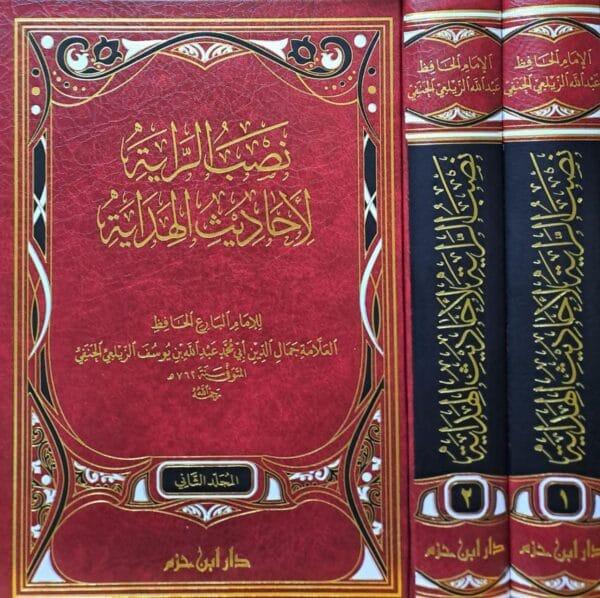 نَصْبُ الرَّايَة
لِأَحَادِيثِ الهِدَايَة
للإمام البارع الحافظ
العلامة جمال الدين أبي محمد عبد الله بن يوسف الزيلعي الحنفي
المتوفى سنة ٧٦٢ هـ
رحمه الله
المجلد الثاني
دار ابن حزم
الإمام الحافظ
عبد الله الزيلعي الحنفي
نصب الراية لأحاديث الهداية
٢
دار ابن حزم
الإمام الحافظ
عبد الله الزيلعي الحنفي
نصب الراية لأحاديث الهداية
١
دار ابن حزم